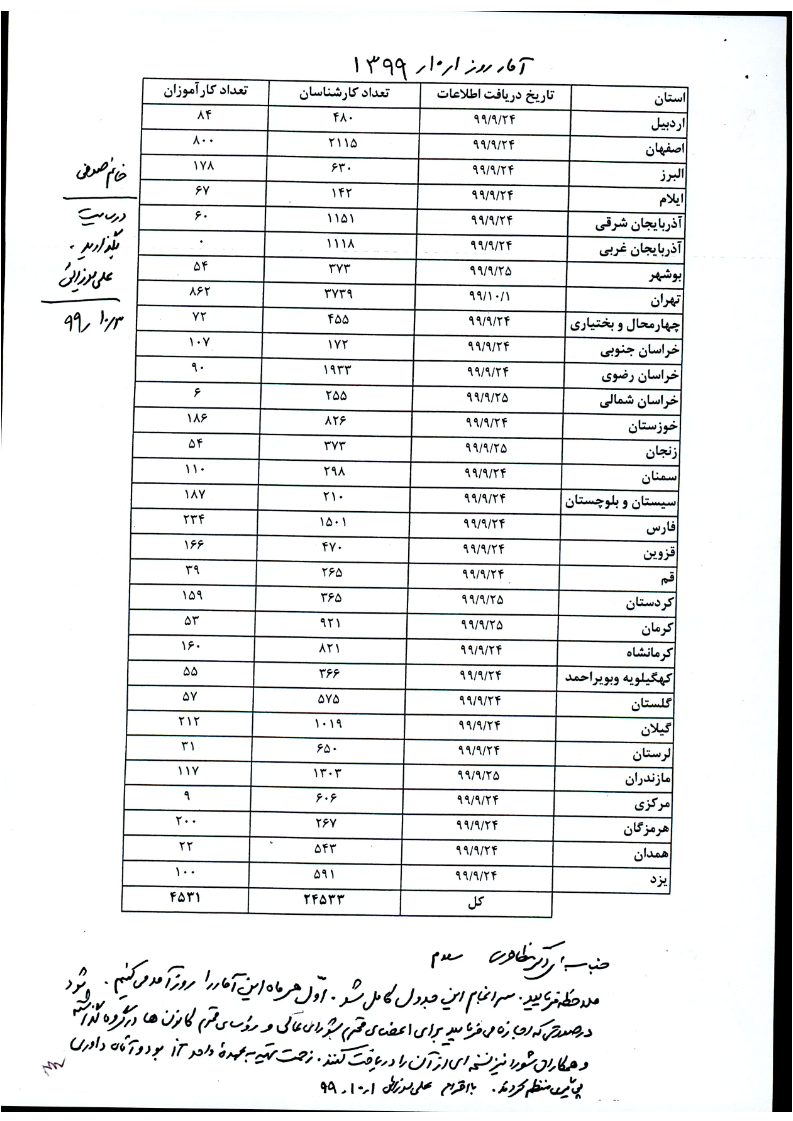 آمار روز ۱۰/۱/ ۱۳۹۹
استان تاریخ دریافت اطلاعات تعداد کارشناسان تعداد کارآموزان
اردبیل ۹۹/۹/۲۴ ۴۸۰ ۸۴
اصفهان ۹۹/۹/۲۴ ۲۱۱۵ ۸۰۰
البرز ۹۹/۹/۲۴ ۶۳۰ ۱۷۸
ایلام ۹۹/۹/۲۴ ۱۴۲ ۶۷
آذربایجان شرقی ۹۹/۹/۲۴ ۱۱۵۱ ۶۰
آذربایجان غربی ۹۹/۹/۲۴ ۱۱۱۸ ۰
بوشهر ۹۹/۹/۲۵ ۳۷۳ ۵۴
تهران ۹۹/۱۰/۱ ۳۷۳۹ ۸۶۲
چهارمحال و بختیاری ۹۹/۹/۲۴ ۴۵۵ ۷۲
خراسان جنوبی ۹۹/۹/۲۴ ۱۷۲ ۱۰۷
خراسان رضوی ۹۹/۹/۲۴ ۱۹۳۳ ۹۰
خراسان شمالی ۹۹/۹/۲۵ ۲۵۵ ۶
خوزستان ۹۹/۹/۲۴ ۸۲۶ ۱۸۶
زنجان ۹۹/۹/۲۵ ۳۷۳ ۵۴
سمنان ۹۹/۹/۲۴ ۲۹۸ ۱۱۰
سیستان و بلوچستان ۹۹/۹/۲۴ ۲۱۰ ۱۸۷
فارس ۹۹/۹/۲۴ ۱۵۰۱ ۲۳۴
قزوین ۹۹/۹/۲۴ ۴۷۰ ۱۶۶
قم ۹۹/۹/۲۴ ۲۶۵ ۳۹
کردستان ۹۹/۹/۲۵ ۳۶۵ ۱۵۹
کرمان ۹۹/۹/۲۵ ۹۲۱ ۵۳
کرمانشاه ۹۹/۹/۲۴ ۸۲۱ ۱۶۰
کهگیلویه وبویراحمد ۹۹/۹/۲۴ ۳۶۶ ۵۵
گلستان ۹۹/۹/۲۴ ۵۷۵ ۵۷
گیلان ۹۹/۹/۲۴ ۱۰۱۹ ۲۱۲
لرستان ۹۹/۹/۲۴ ۶۵۰ ۳۱
مازندران ۹۹/۹/۲۵ ۱۳۰۳ ۱۱۷
مرکزی ۹۹/۹/۲۴ ۶۰۶ ۹
هرمزگان ۹۹/۹/۲۴ ۲۶۷ ۲۰۰
همدان ۹۹/۹/۲۴ ۵۴۳ ۲۲
یزد ۹۹/۹/۲۴ ۵۹۱ ۱۰۰
کل ۲۴۵۳۳ ۴۵۳۱
خانم صوفی
در سایت
بگذارید.
۹۹/۱۰/۳
جناب آقای دکتر سلام
ملاحظه فرمایید. سرانجام این جدول کامل شد. اول هر ماه این آمار را روزآمد می‌کنیم.
در صورتی که اجازه می‌فرمایید برای اعضای محترم شورای عالی و رؤسای محترم کانون ها در گروه گذاشته شود
و همکاران شورا نیز نسخه ای از آن را دریافت کنند. زحمت تهیه به عهدۀ واحد بود و آقای داوری
پی‌گیری منظم کردند. با احترام ۹۹/۱۰/۱